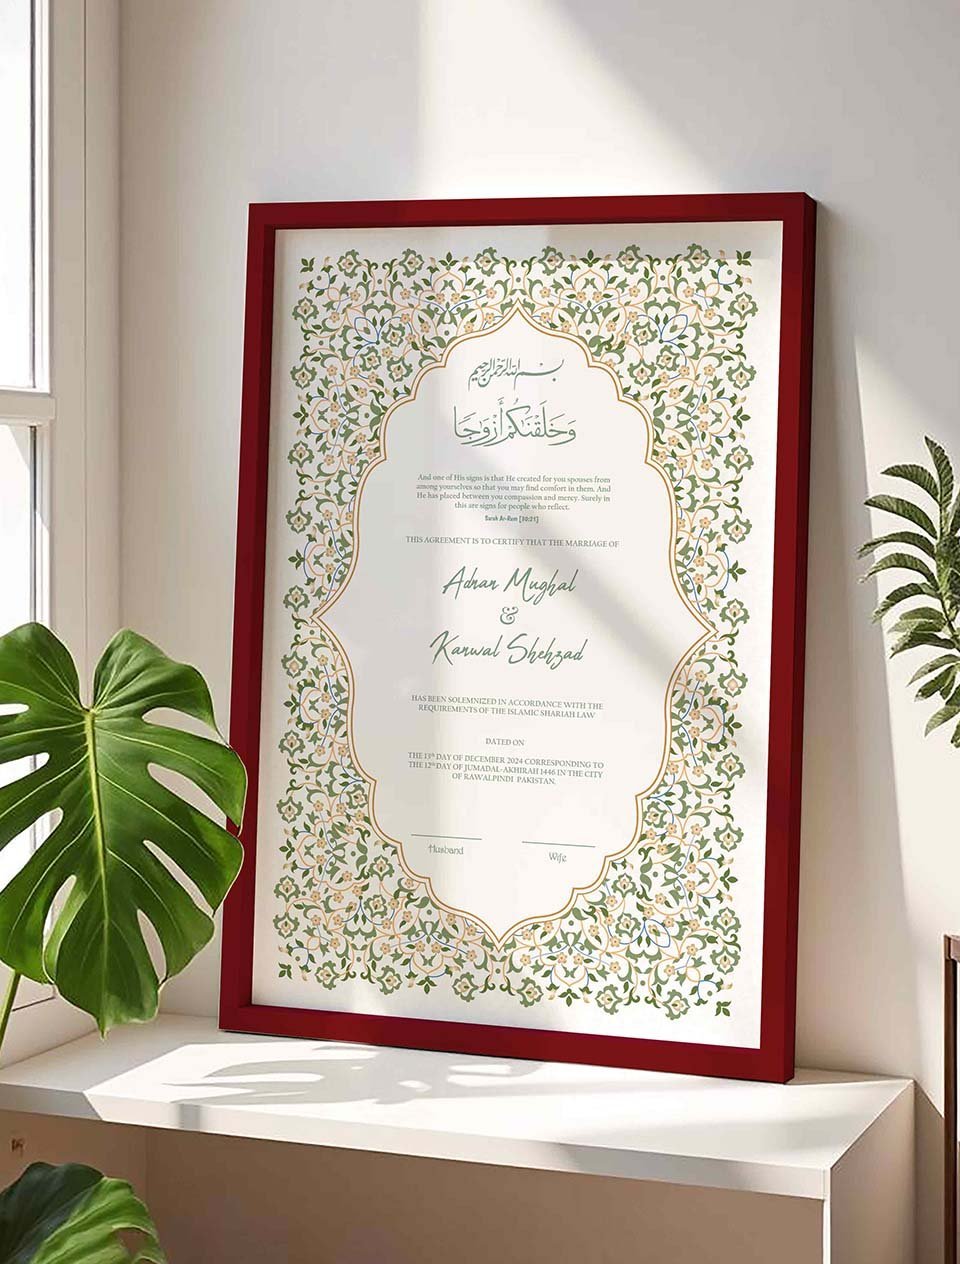 بسم الله الرحمن الرحيم
وَخَلَقْنَكُمْ أَزْوَجًا
And one of His signs is that He created for you spouses from
among yourselves so that you may find comfort in them. And
He has placed between you compassion and mercy. Surely in
this are signs for people who reflect.
Surah Ar-Rum [30:21]
THIS AGREEMENT IS TO CERTIFY THAT THE MARRIAGE OF
Adnan Mughal
&
Kanwal Shehzad
HAS BEEN SOLEMNIZED IN ACCORDANCE WITH THE
REQUIREMENTS OF THE ISLAMIC SHARIAH LAW
DATED ON
THE 13th DAY OF DECEMBER 2024 CORRESPONDING TO
THE 12th DAY OF JUMADAL-AKHIRAH 1446 IN THE CITY
OF RAWALPINDI PAKISTAN.
Husband
Wife